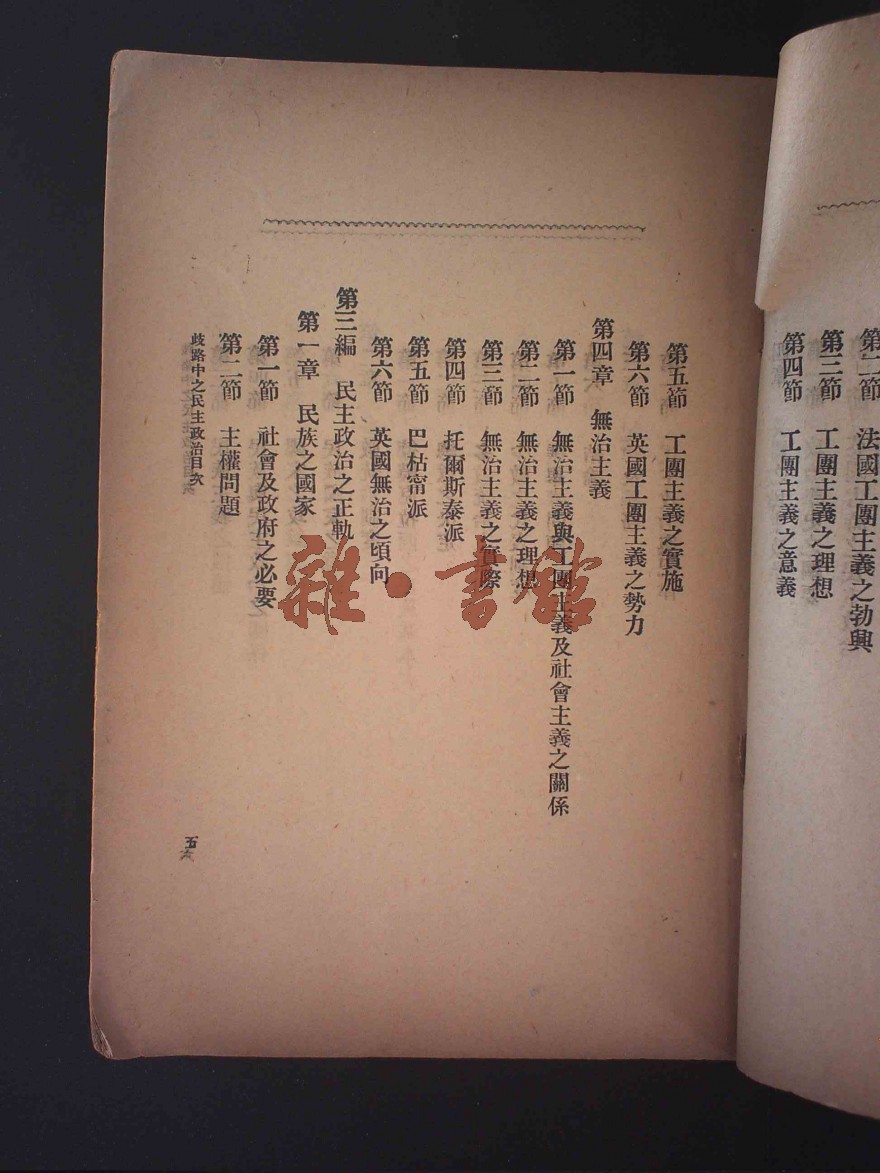 第二節　法國工團主義之勃興
第三節　工團主義之理想
第四節　工團主義之意義
第五節　工團主義之實施
第六節　英國工團主義之勢力
第四章　無治主義
第一節　無治主義與工團主義及社會主義之關係
第二節　無治主義之理想
第三節　無治主義之實際
第四節　托爾斯泰派
第五節　巴枯甯派
第六節　英國無治之傾向
第三編　民主政治之正軌
第一章　民族之國家
第一節　社會及政府之必要
第二節　主權問題
歧路中之民主政治目次
五
雜·書館